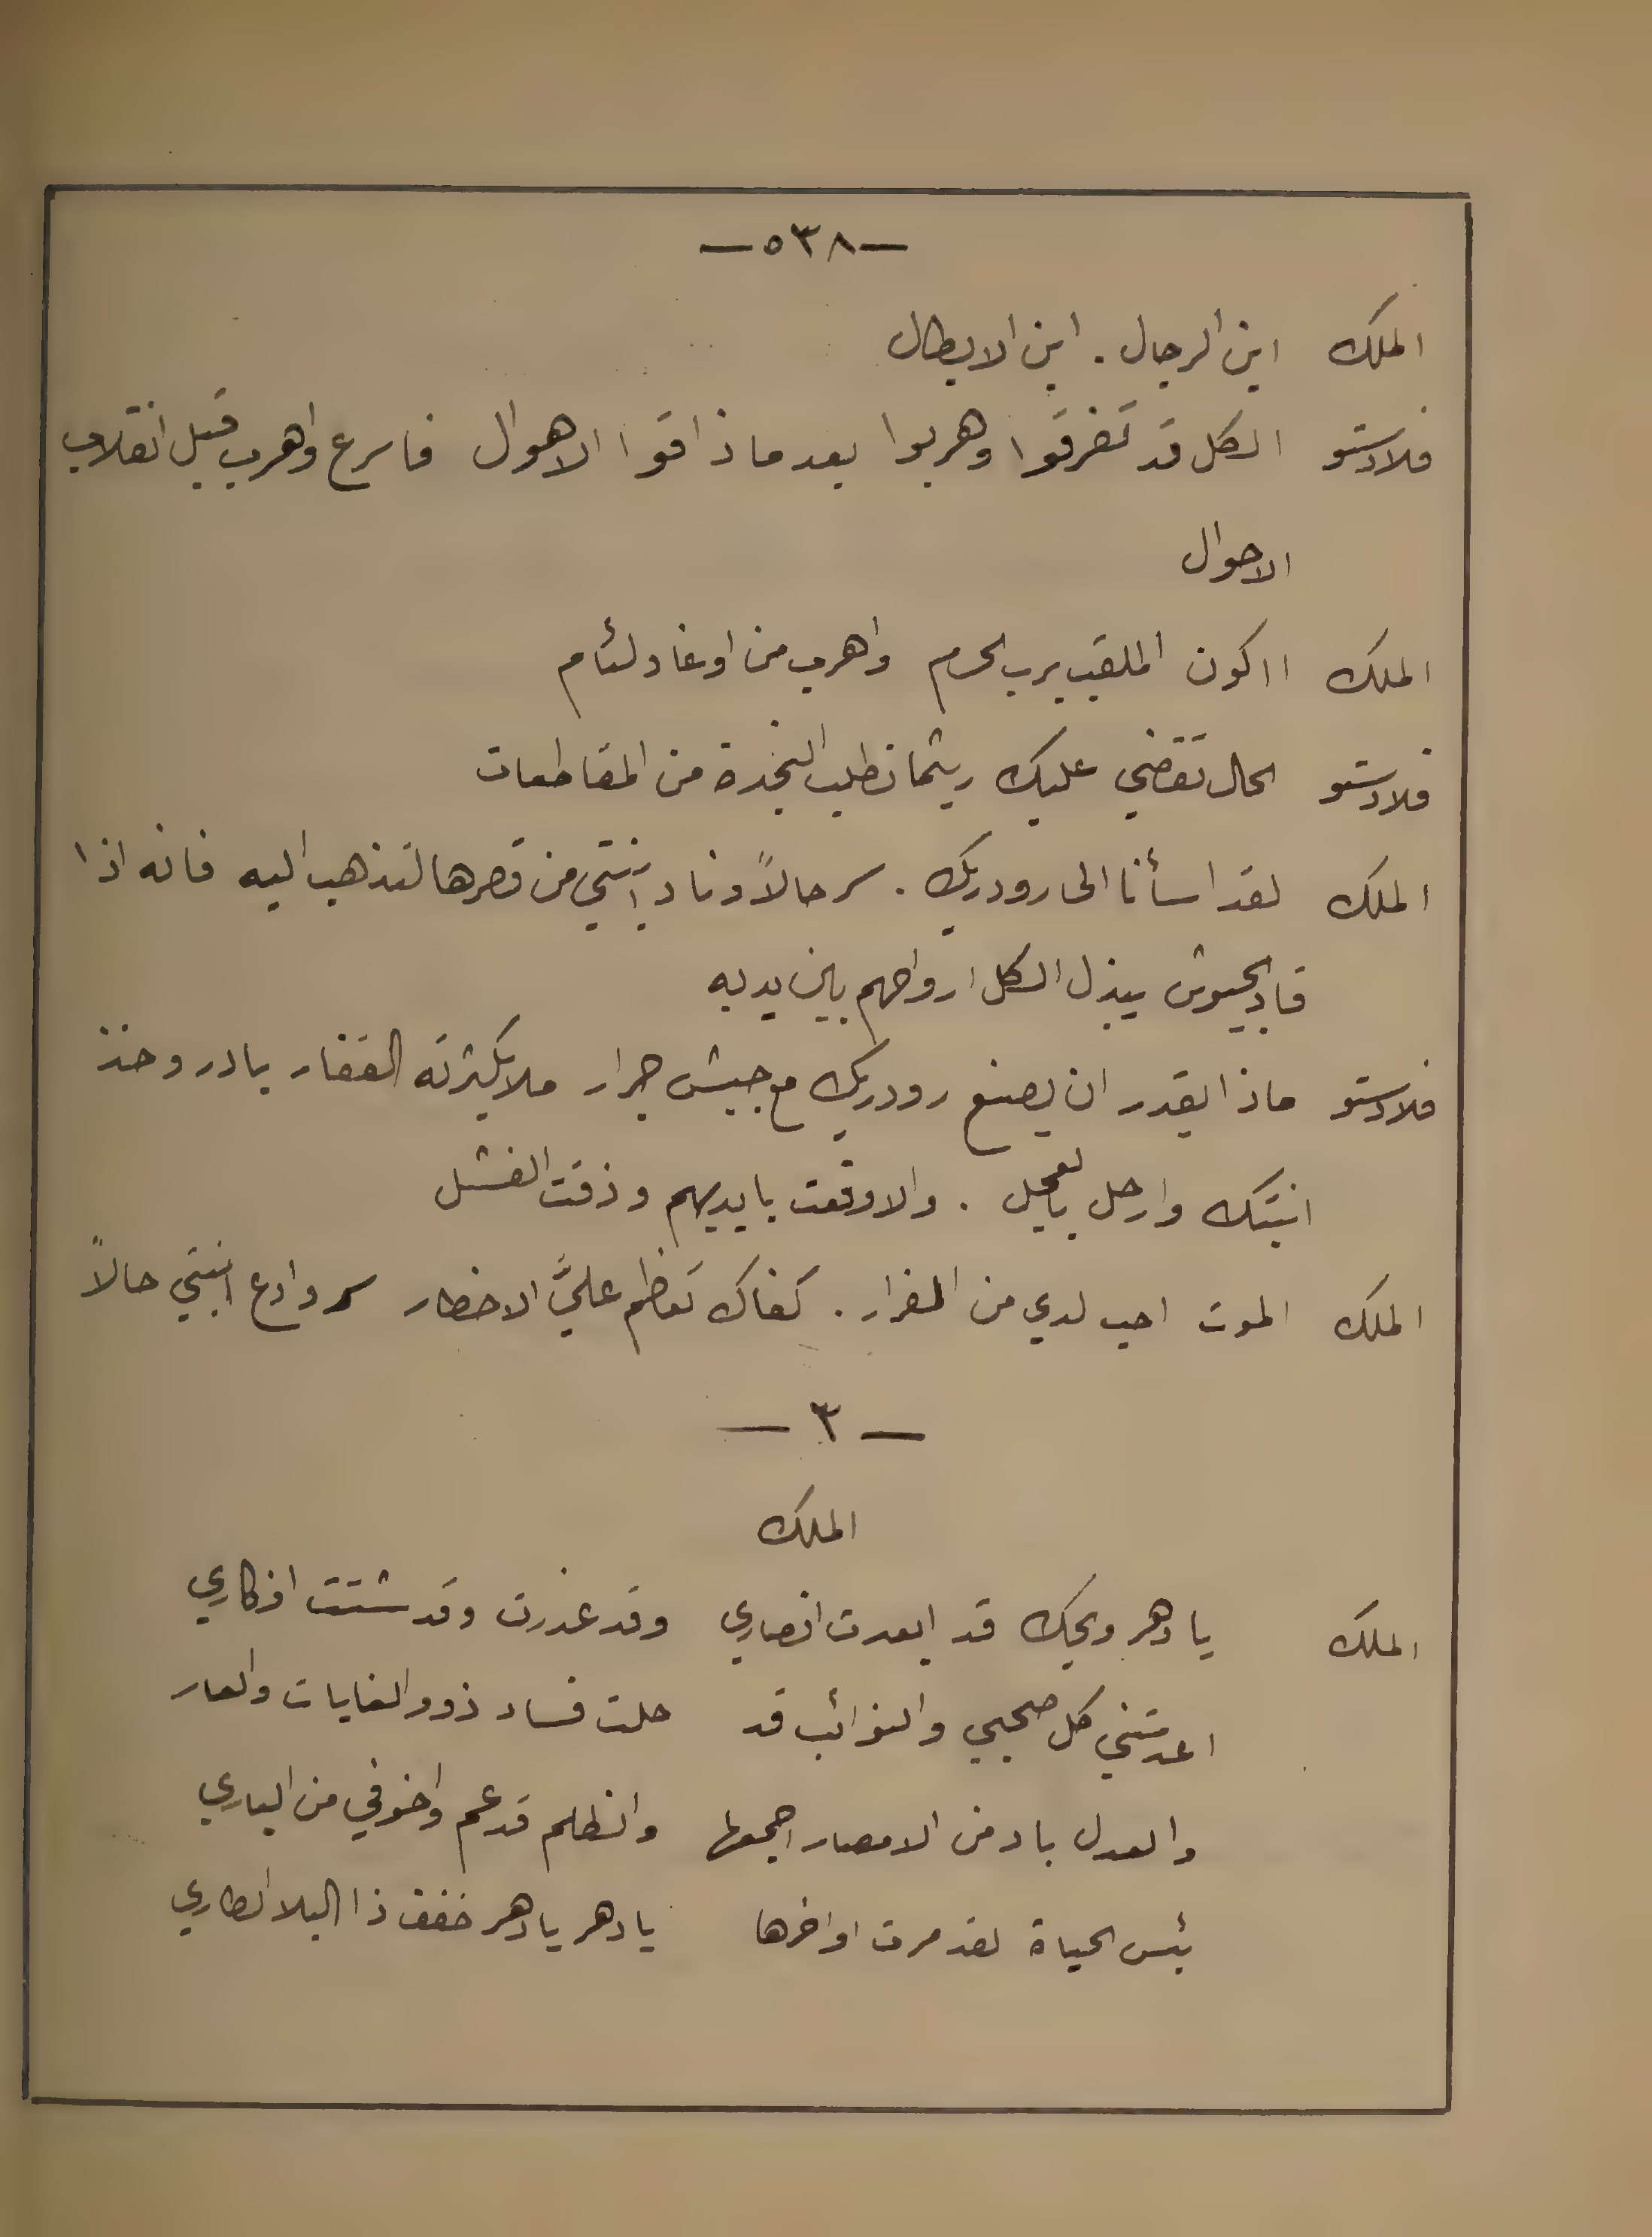 —٥٣٨—
الملك اين الرجال . اين الابطال
فلادستو الكل قد تفرقوا وهربوا بعد ما ذاقوا الاهوال فاسرع واهرب قبيل انقلاب
الاحوال
الملك ااكون الملقب برب الحرم واهرب من اوغاد لئام
فلادستو الحال تقضي عليك ريثما نطلب النجدة من المقاطعات
الملك لقد اسأنا الى رودريك . سر حالاً وناد ابنتي من قصرها لتذهب اليه فانه اذا
قاد الجيوش يبذل الكل ارواحهم بين يديه
فلادستو ماذا يقدر ان يصنع رودريك مع جيش جرار ملا بكثرته القفار بادر وخذ
ابنتك وارحل بالعجل . والا وقعت بايديهم وذقت الفشل
الملك الموت احب لدي من الفرار . كفاك تعظم عليَّ الاخطار سر وادع ابنتي حالاً
— ٣ —
الملك
الملك يا دهر ويحك قد ابعدت انصاري وقد غدرت وقد شتتت افكاري
اعدمتني كل صحبي والنوائب قد حلت فساد ذوو الغايات والعار
والعدل باد من الامصار اجمعها والظلم قد عم واخوفي من الباري
بئس الحياة لقد مرت اواخرها يا دهر يا دهر خفف ذا البلا الطاري